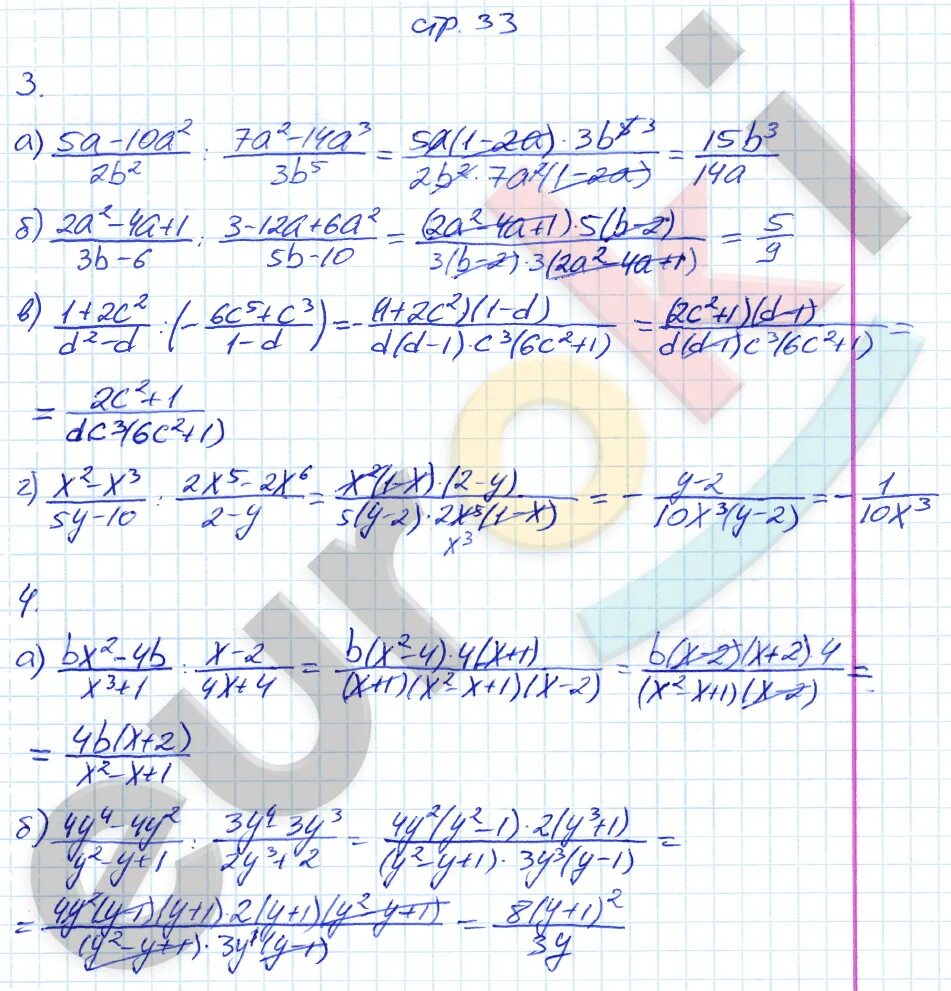 стр. 33
3.
а) (5a-10a²)/(2b²) : (7a²-14a³)/(3b⁵) = (5a(1-2a)·3b⁵ ³)/(2b²·7a²(1-2a)) = 15b³/14a
б) (2a²-4a+1)/(3b-6) : (3-12a+6a²)/(5b-10) = ((2a²-4a+1)·5(b-2))/(3(b-2)·3(2a²-4a+1)) = 5/9
в) (1+2c²)/(d²-d) : (- (6c⁵+c³)/(1-d)) = - ((1+2c²)(1-d))/(d(d-1)·c³(6c²+1)) = ((2c²+1)(d-1))/(d(d-1)c³(6c²+1)) =
= (2c²+1)/(dc³(6c²+1))
г) (x²-x³)/(5y-10) : (2x⁵-2x⁶)/(2-y) = (x²(1-x)·(2-y))/(5(y-2)·2x⁵(1-x)) = - (y-2)/(10x³(y-2)) = - 1/(10x³)
x³
4.
а) (bx²-4b)/(x³+1) : (x-2)/(4x+4) = (b(x²-4)·4(x+1))/((x+1)(x²-x+1)(x-2)) = (b(x-2)(x+2)4)/((x²-x+1)(x-2)) =
= (4b(x+2))/(x²-x+1)
б) (4y⁴-4y²)/(y²-y+1) : (3y⁴-3y³)/(2y³+2) = (4y²(y²-1)·2(y³+1))/((y²-y+1)·3y³(y-1)) =
= (4y²(y-1)(y+1)·2(y+1)(y²-y+1))/((y²-y+1)·3y¹(y-1)) = (8(y+1)²)/(3y)
euroki